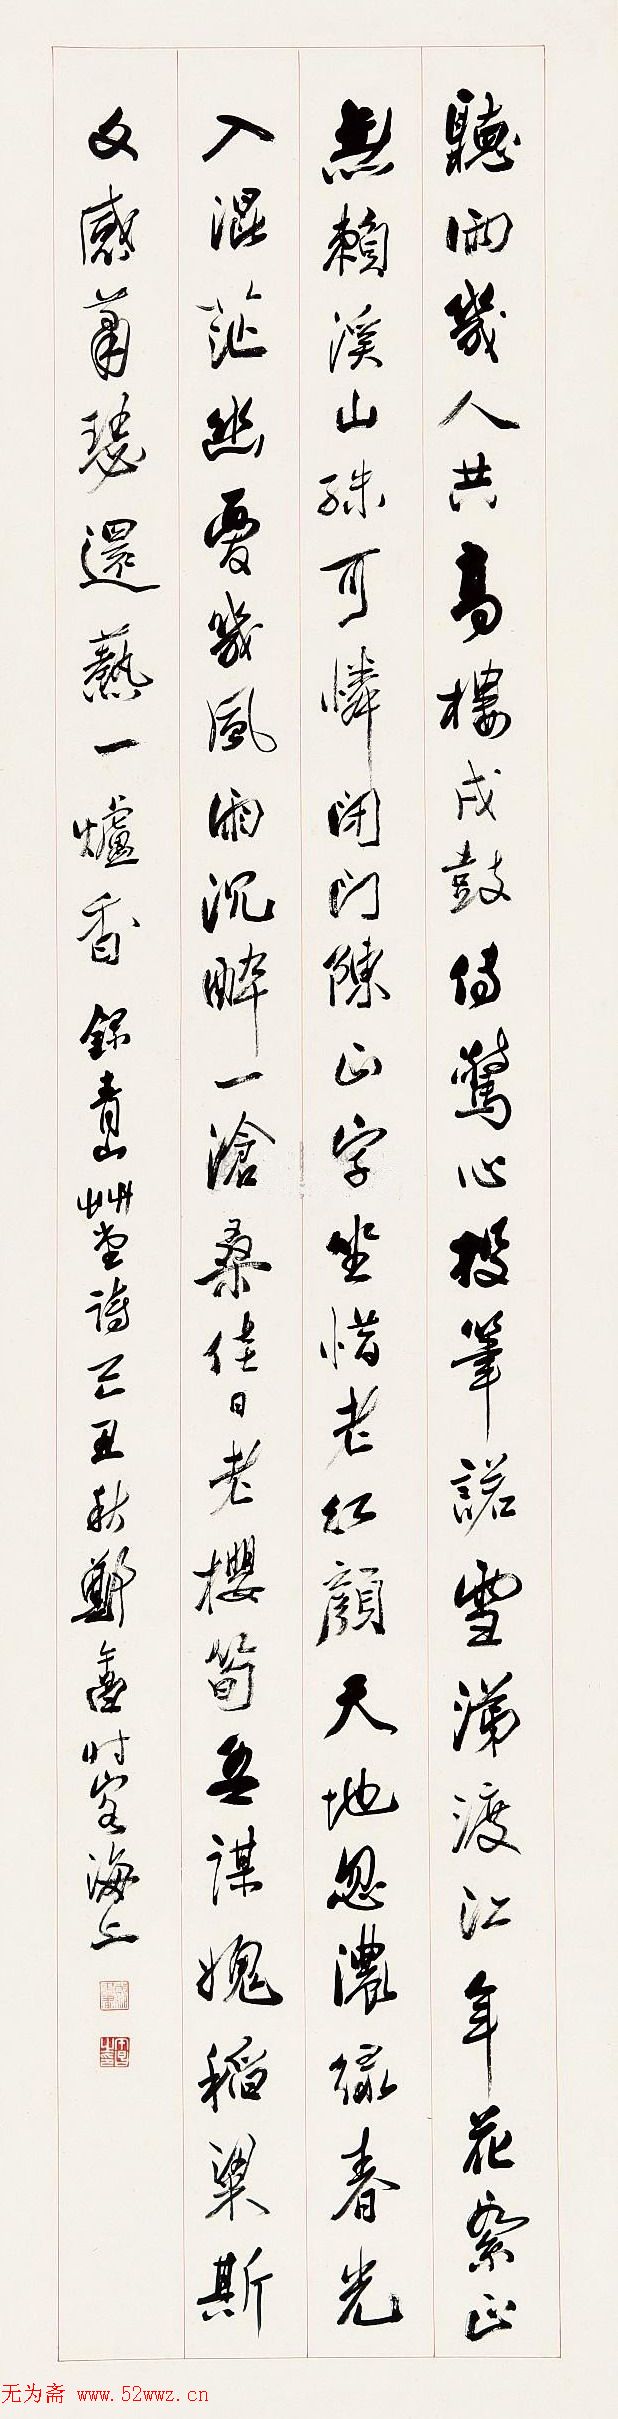 聽雨幾人共高樓戍鼓傳驚心投筆諾雪涕渡江年花絮正
無賴溪山殊可憐閉門陳正字坐惜老紅顏天地忽濃綠春光
入混茫幽憂幾風雨沉醉一滄桑佳日老櫻筍無謀愧稻粱斯
文感蕭瑟還爇一爐香 錄青山艸堂詩 己丑秋鄭時客海上
无为斋 www.52wwz.cn